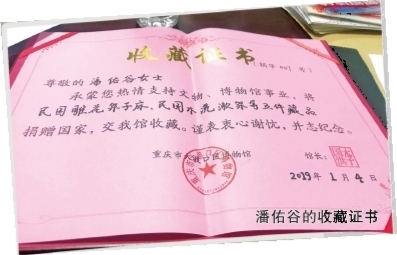 收藏证书
尊敬的 潘佑谷女士
承蒙您热情支持文物、博物馆事业，将
民国雕花架子床、民国木洗漱架等五件藏品
捐赠国家，交我馆收藏。谨表衷心谢忱，并志纪念。
重庆市大渡口区博物馆 馆长：
2019年1月4日
潘佑谷的收藏证书